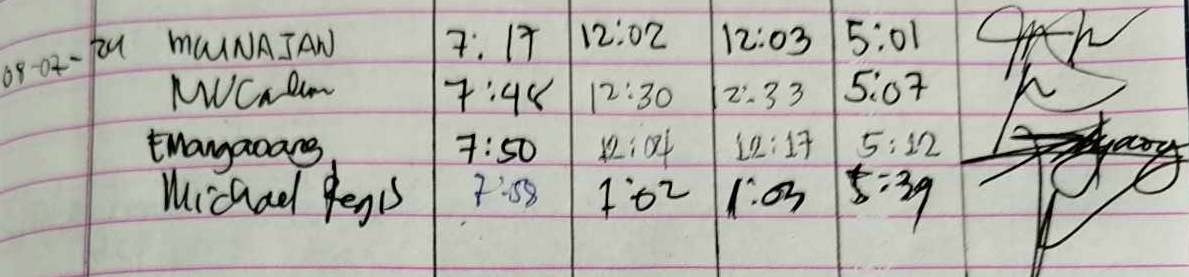 08-02-24 MWNAJAN 7:17 12:02 12:03 5:01
7:48 12:30 12:33 5:07
EMangaoang 7:50 12:04 12:17 5:12
Michael Regis 7:58 1:02 1:03 5:39